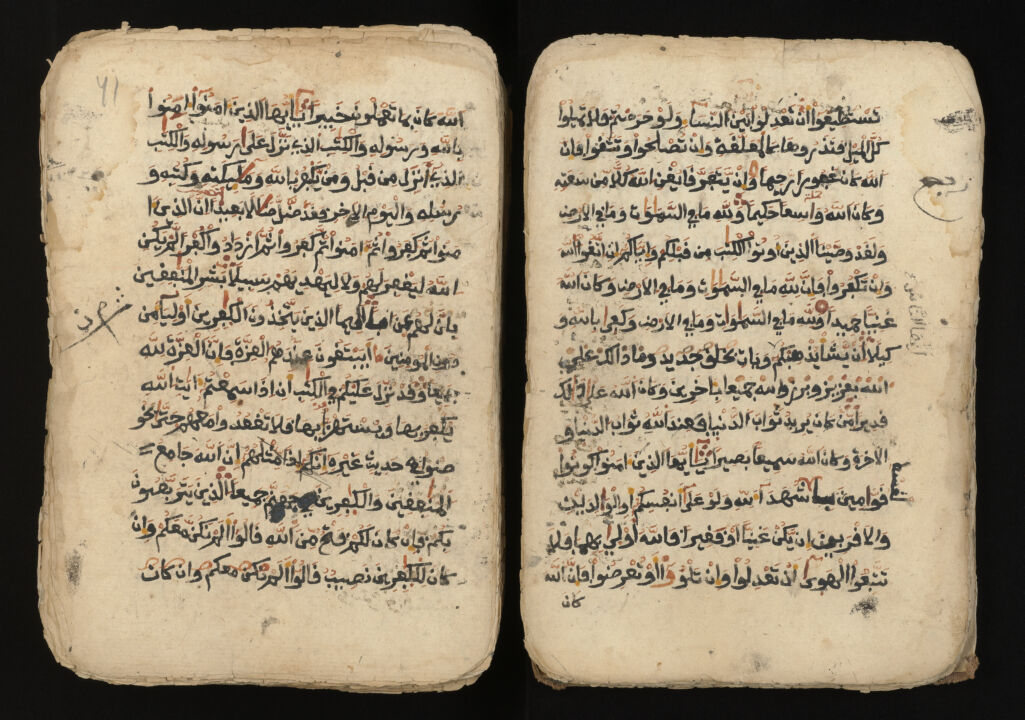 تستطيعوا ان تعدلوا بين النسا ولو حرصتم فلا تميلوا
كل الميل فتذروها كالمعلقة وان تصلحوا وتتقوا فان
الله كان غفورا رحيما وان يتفرقا يغن الله كلا من سعته
وكان الله واسعا حكيما ولله ما في السموات وما في الارض
ولقد وصينا الذين اوتوا الكتب من قبلكم واياكم ان اتقوا الله
وان تكفروا فان لله ما في السموات وما في الارض وكان الله
غنيا حميدا ولله ما في السموات وما في الارض وكفى بالله و
كيلا ان يشا يذهبكم ويات بخلق جديد وما ذالك على
الله بعزيز وبرزوا لله جميعا باخرين وكان الله على ذلك
قديرا من كان يريد ثواب الدنيا فعند الله ثواب الدنيا و
الاخرة وكان الله سميعا بصيرا يايها الذين امنوا كونوا
قوامين شهدا لله ولو على انفسكم او الوالدين
والاقربين ان يكن غنيا او فقيرا فالله اولى بهما فلا
تتبعوا الهوى ان تعدلوا وان تلوا او تعرضوا فان الله
كان
41
الله كان بما تعملون خبيرا يايها الذين امنوا امنوا
بالله ورسوله والكتب الذي نزل على رسوله والكتب
الذي انزل من قبل ومن يكفر بالله وملىكته وكتبه و
رسله واليوم الاخر فقد ضل ضللا بعيدا ان الذين ا
منوا ثم كفروا ثم امنوا ثم كفروا ثم ازدادوا كفرا لم يكن
الله ليغفر لهم ولا ليهديهم سبيلا بشر المنفقين
بان لهم عذابا اليما الذين يتخذون الكفرين اوليا من
دون المومنين ايبتغون عندهم العزة فان العزة لله
جميعا وقد نزل عليكم في الكتب ان اذا سمعتم ايت الله
يكفر بها ويستهزا بها فلا تقعدوا معهم حتى يخو
ضوا في حديث غيره انكم اذا مثلهم ان الله جامع
المنفقين والكفرين في جهنم جميعا الذين يتربصون
بكم فان كان لكم فتح من الله قالوا الم نكن معكم وان
كان للكفرين نصيب قالوا الم نكن معكم وان كان